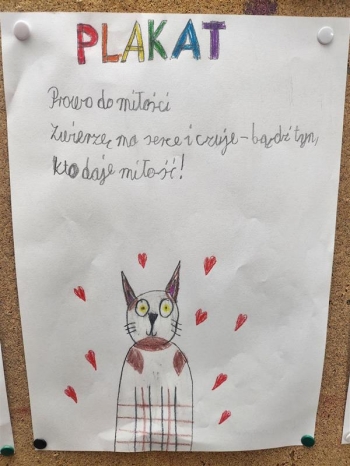 PLAKAT
Prawo do miłości
Zwierzę ma serce i czuje - bądź tym,
kto daje miłość!